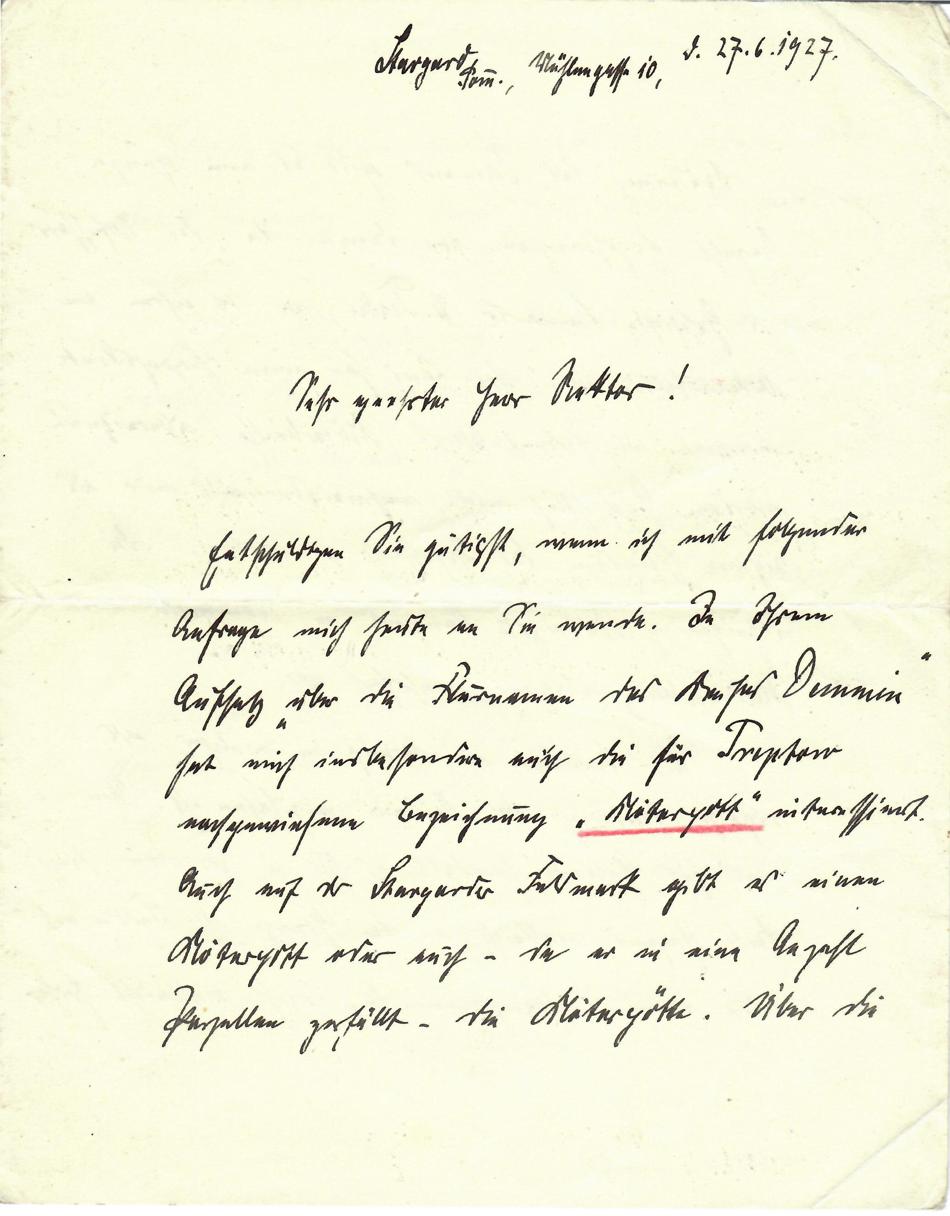 Stargard Pom̅., Mühlengasse 10, d. 27.6.1927.
Sehr geehrter Herr Rektor!
Entschuldigen Sie gütigst, wenn ich mit folgender
Anfrage mich heute an Sie wende. In Ihrem
Aufsatz „über die Flurnamen des Kreises Demmin“
hat mich insbesondere auch die für Treptow
nachgewiesene Bezeichnung „Möterpött“ interessiert.
Auch auf der Stargarder Feldmark gibt es einen
Möterpött oder auch – da er in eine Anzahl
Parzellen zerfällt – die Möterpötte. Über die